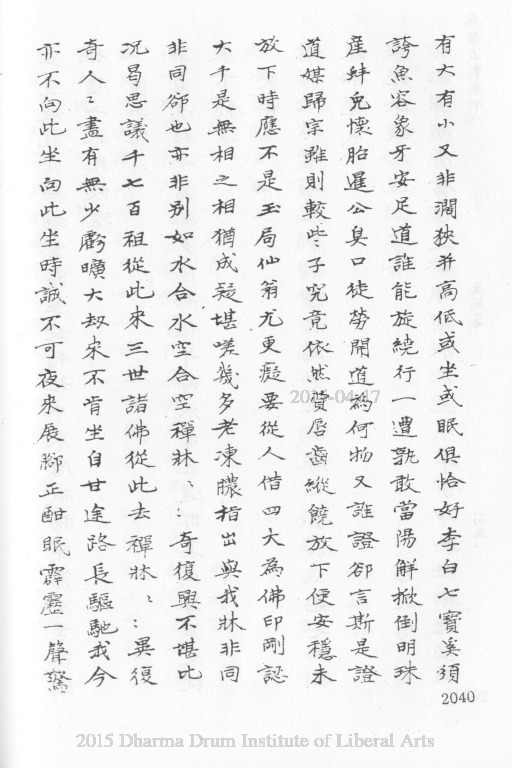 有大有小又非濶狹并高低或坐或眠俱恰好李白七寶奚須
誇魚容象牙安足道誰能旋繞行一遭孰敢當陽解掀倒明珠
產蚌兔懷胎暹公臭口徒勞開道為何物又誰證卻言斯是證
道媒歸宗雖則較些子究竟依然費唇齒縱饒放下便安穩未
放下時應不是玉局仙翁尤更癡要從人借四大為佛印剛認
大千是無相之相猶成疑堪嗟幾多老凍膿指出與我牀非同
非同卻也亦非別如水合水空合空禪牀、、奇復興不堪比
况曷思議千七百祖從此來三世諸佛從此去禪牀、、異復
奇人、盡有無少虧曠大劫來不肯坐自甘途路長驅馳我今
亦不向此坐向此坐時誠不可夜來展腳正酣眠霹靂一聲驚
2040
2015 Dharma Drum Institute of Liberal Arts